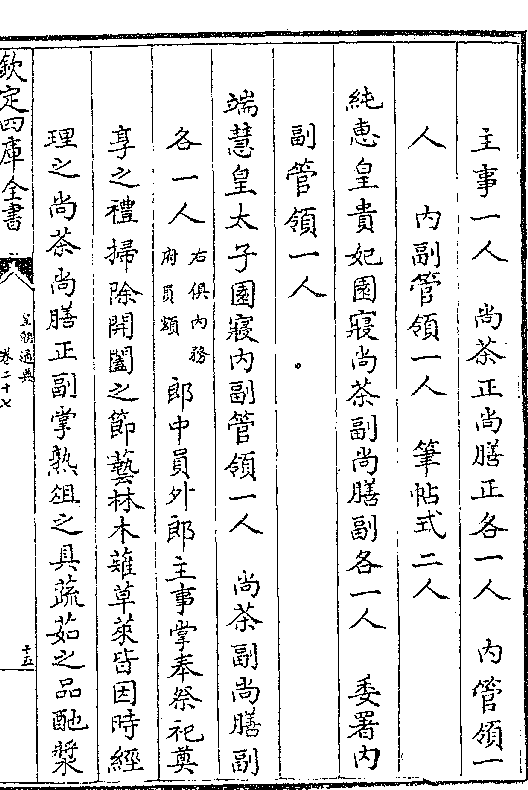 主事一人　尚茶正尚膳正各一人　內管領一
人　內副管領一人　筆帖式二人
純惠皇貴妃園寢尚茶副尚膳副各一人　委署內
副管領一人
端慧皇太子園寢內副管領一人　尚茶副尚膳副
各一人右俱內務府員額郎中員外郎主事掌奉祭祀奠
享之禮掃除開闔之節藝林木薙草萊皆因時經
理之尚茶尚膳正副掌熟俎之具蔬茹之品酏漿
欽定四庫全書
皇朝通典
卷二十七
十五